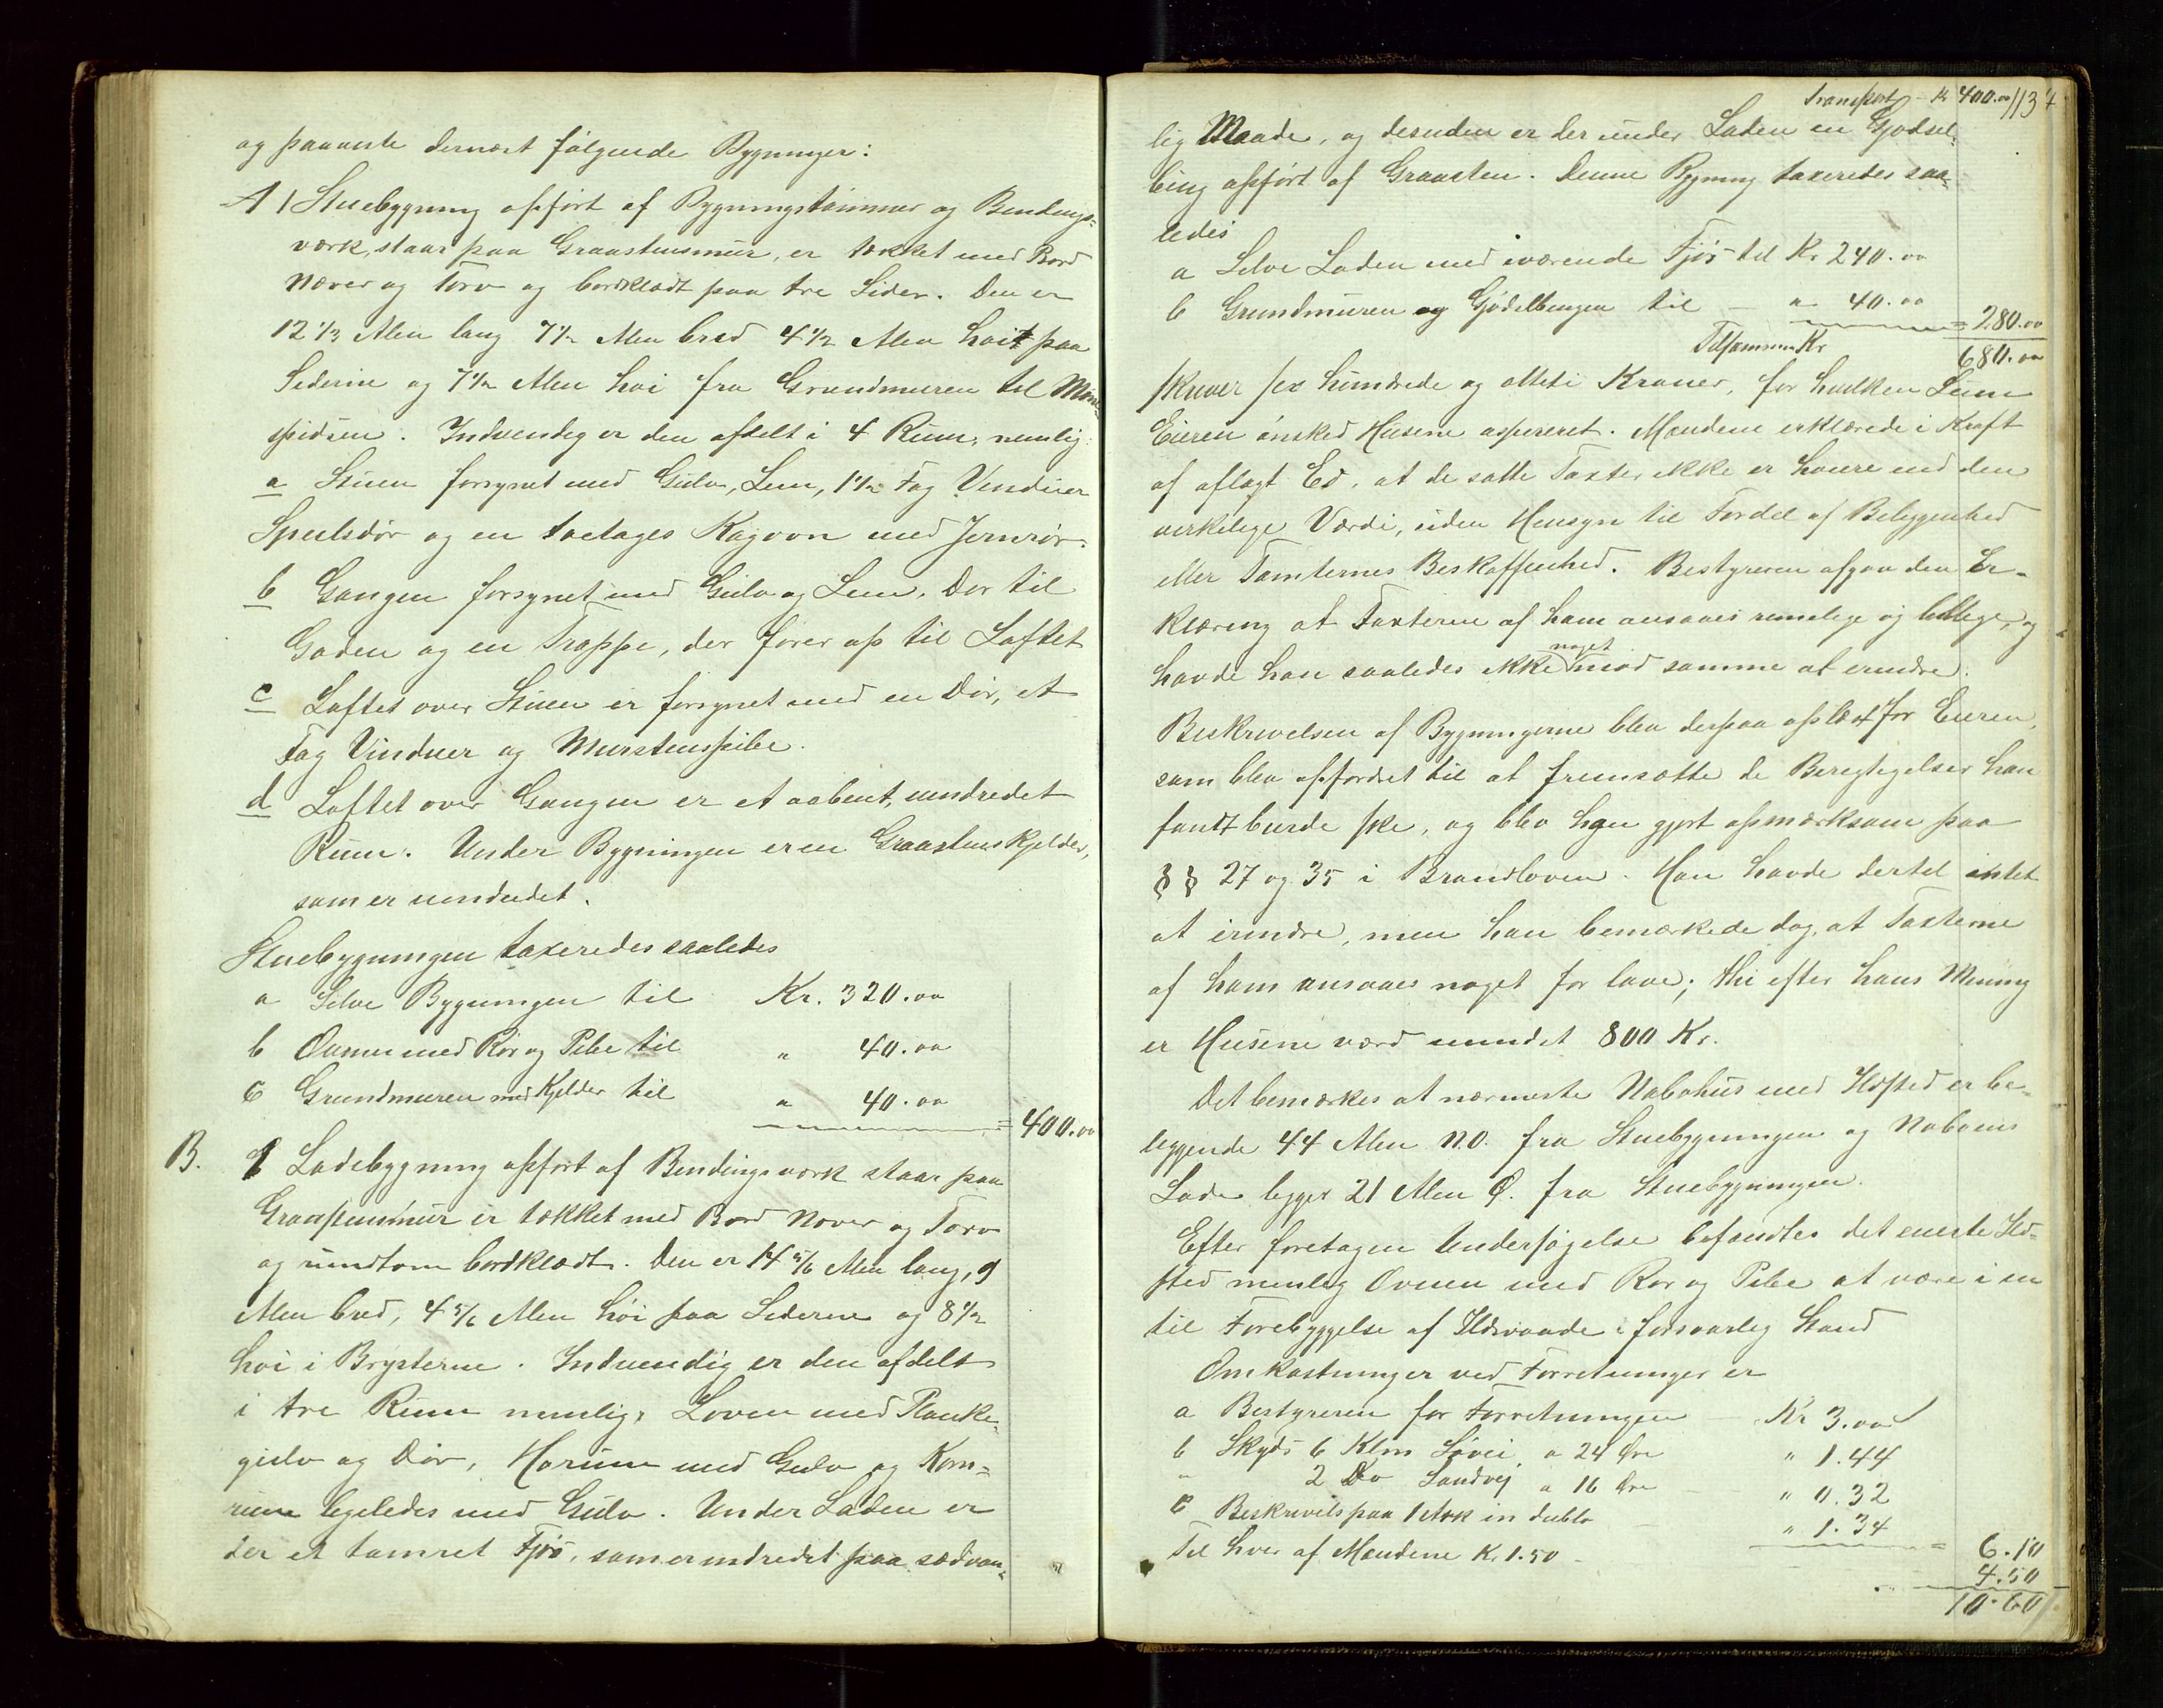 og paaviste dernæst følgende Bygninger:
A 1 Stuebygning opført af Bygningstømmer og Bindings=
værk, staar paa Graastensmur, er tækket med Bord
Næver og Torv og bordklædt paa tre Sider. Den er
12 1/3 Alen lang 7 1/2 Alen bred 4 1/2 Alen høit paa
Siderne og 7 1/2 Alen høi fra Grundmuren til Møne=
spidsen. Indvendig er den afdelt i 4 Rum, nemlig:
a Stuen forsynet med Gulv, Lem, 1 1/2 Fag Vinduer
Speilsdør og en toetages Kagovn med Jernrør.
b Gangen forsynet med Gulv og Lem, Dør til
Gaden og en Trappe, der fører op til Loftet
c Loftet over Stuen er forsynet med en Dør, et
Fag Vinduer og Murstenspibe.
d Loftet over Gangen er et aabent, uindredet
Rum. Under Bygningen er en Graastens Kjelder,
som er uindredet.
Stuebygningen taxeredes saaledes
a Selve Bygningen til Kr. 320.00
b Ovnen med Rør og Pibe til " 40.00
c Grundmuren med Kjelder til " 40.00
= 400.00
B. 1 Ladebygning opført af Bindingsværk staar paa
Graastensmur er tækket med Bord Næver og Torv
og rundtom bordklædt. Den er 14 5/6 Alen lang, 9
Alen bred, 4 5/6 Alen høi paa Siderne og 8 1/2
høi i Brysterne. Indvendig er den afdelt
i tre Rum nemlig, Loven med Planke=
gulv og Dør, Hørum med Gulv og Korn=
rum ligeledes med Gulv. Under Laden er
der et tømret Fjøs, som er indredet paa sædvan=
Transport - Kr 400.00 113
lig Maade, og desuden er der under Laden en Gjødsel=
bing opført af Graasten. Denne Bygning taxeredes saa=
ledes
a Selve Laden med iværende Fjøs til Kr 240.00
b Grundmuren og Gjødelbingen til - " 40.00
= 280.00
Tilsammen Kr 680.00
skriver sex hundrede og otteti Kroner, for hvilken Sum
Eieren ønsked Husene assureret. Mændene erklærede i Kraft
af aflagt Ed, at de satte Taxter ikke er høiere end den
virkelige Værdi, uden Hensyn til Fordel af Beliggenhed
eller Tomternes Beskaffenhed. Bestyreren afgav den Er=
klæring at Taxterne af ham ansaaes rimelige og billige, og
havde han saaledes ikke noget mod samme at erindre.
Beskrivelsen af Bygningerne blev derpaa oplæst for Eieren,
som blev opfordret til at fremsætte de Berigtigelser han
fandt burde ske, og blev han gjort opmærksom paa
§§ 27 og 35 i Brandloven. Han havde dertil intet
at erindre, men han bemærkede dog, at Taxterne
af ham ansaaes noget for lave; thi efter hans Mening
er Husene værd mindst 800 Kr.
Det bemærkes at nærmeste Nabohus med Ildsted er be=
liggende 44 Alen N.O. fra Stuebygningen og Naboens
Lade ligger 21 Alen Ø. fra Stuebygningen.
Efter foretagen Undersøgelse befandtes det eneste Ild=
sted nemlig Ovnen med Rør og Pibe at være i en
til Forebyggelse af Ildsvaade forsvarlig Stand
Omkostninger ved Forretninger er
a Bestyreren for Forretningen Kr 3.00
b Skyds 6 Klm Søvei a 24 Øre " 1.44
" 2 Do Landvej a 16 Øre " 0.32
c Beskrivels paa 1 Ark in dublo " 1.34
= 6.10
Til hver af Mændene Kr. 1.50 - 4.50
10.60